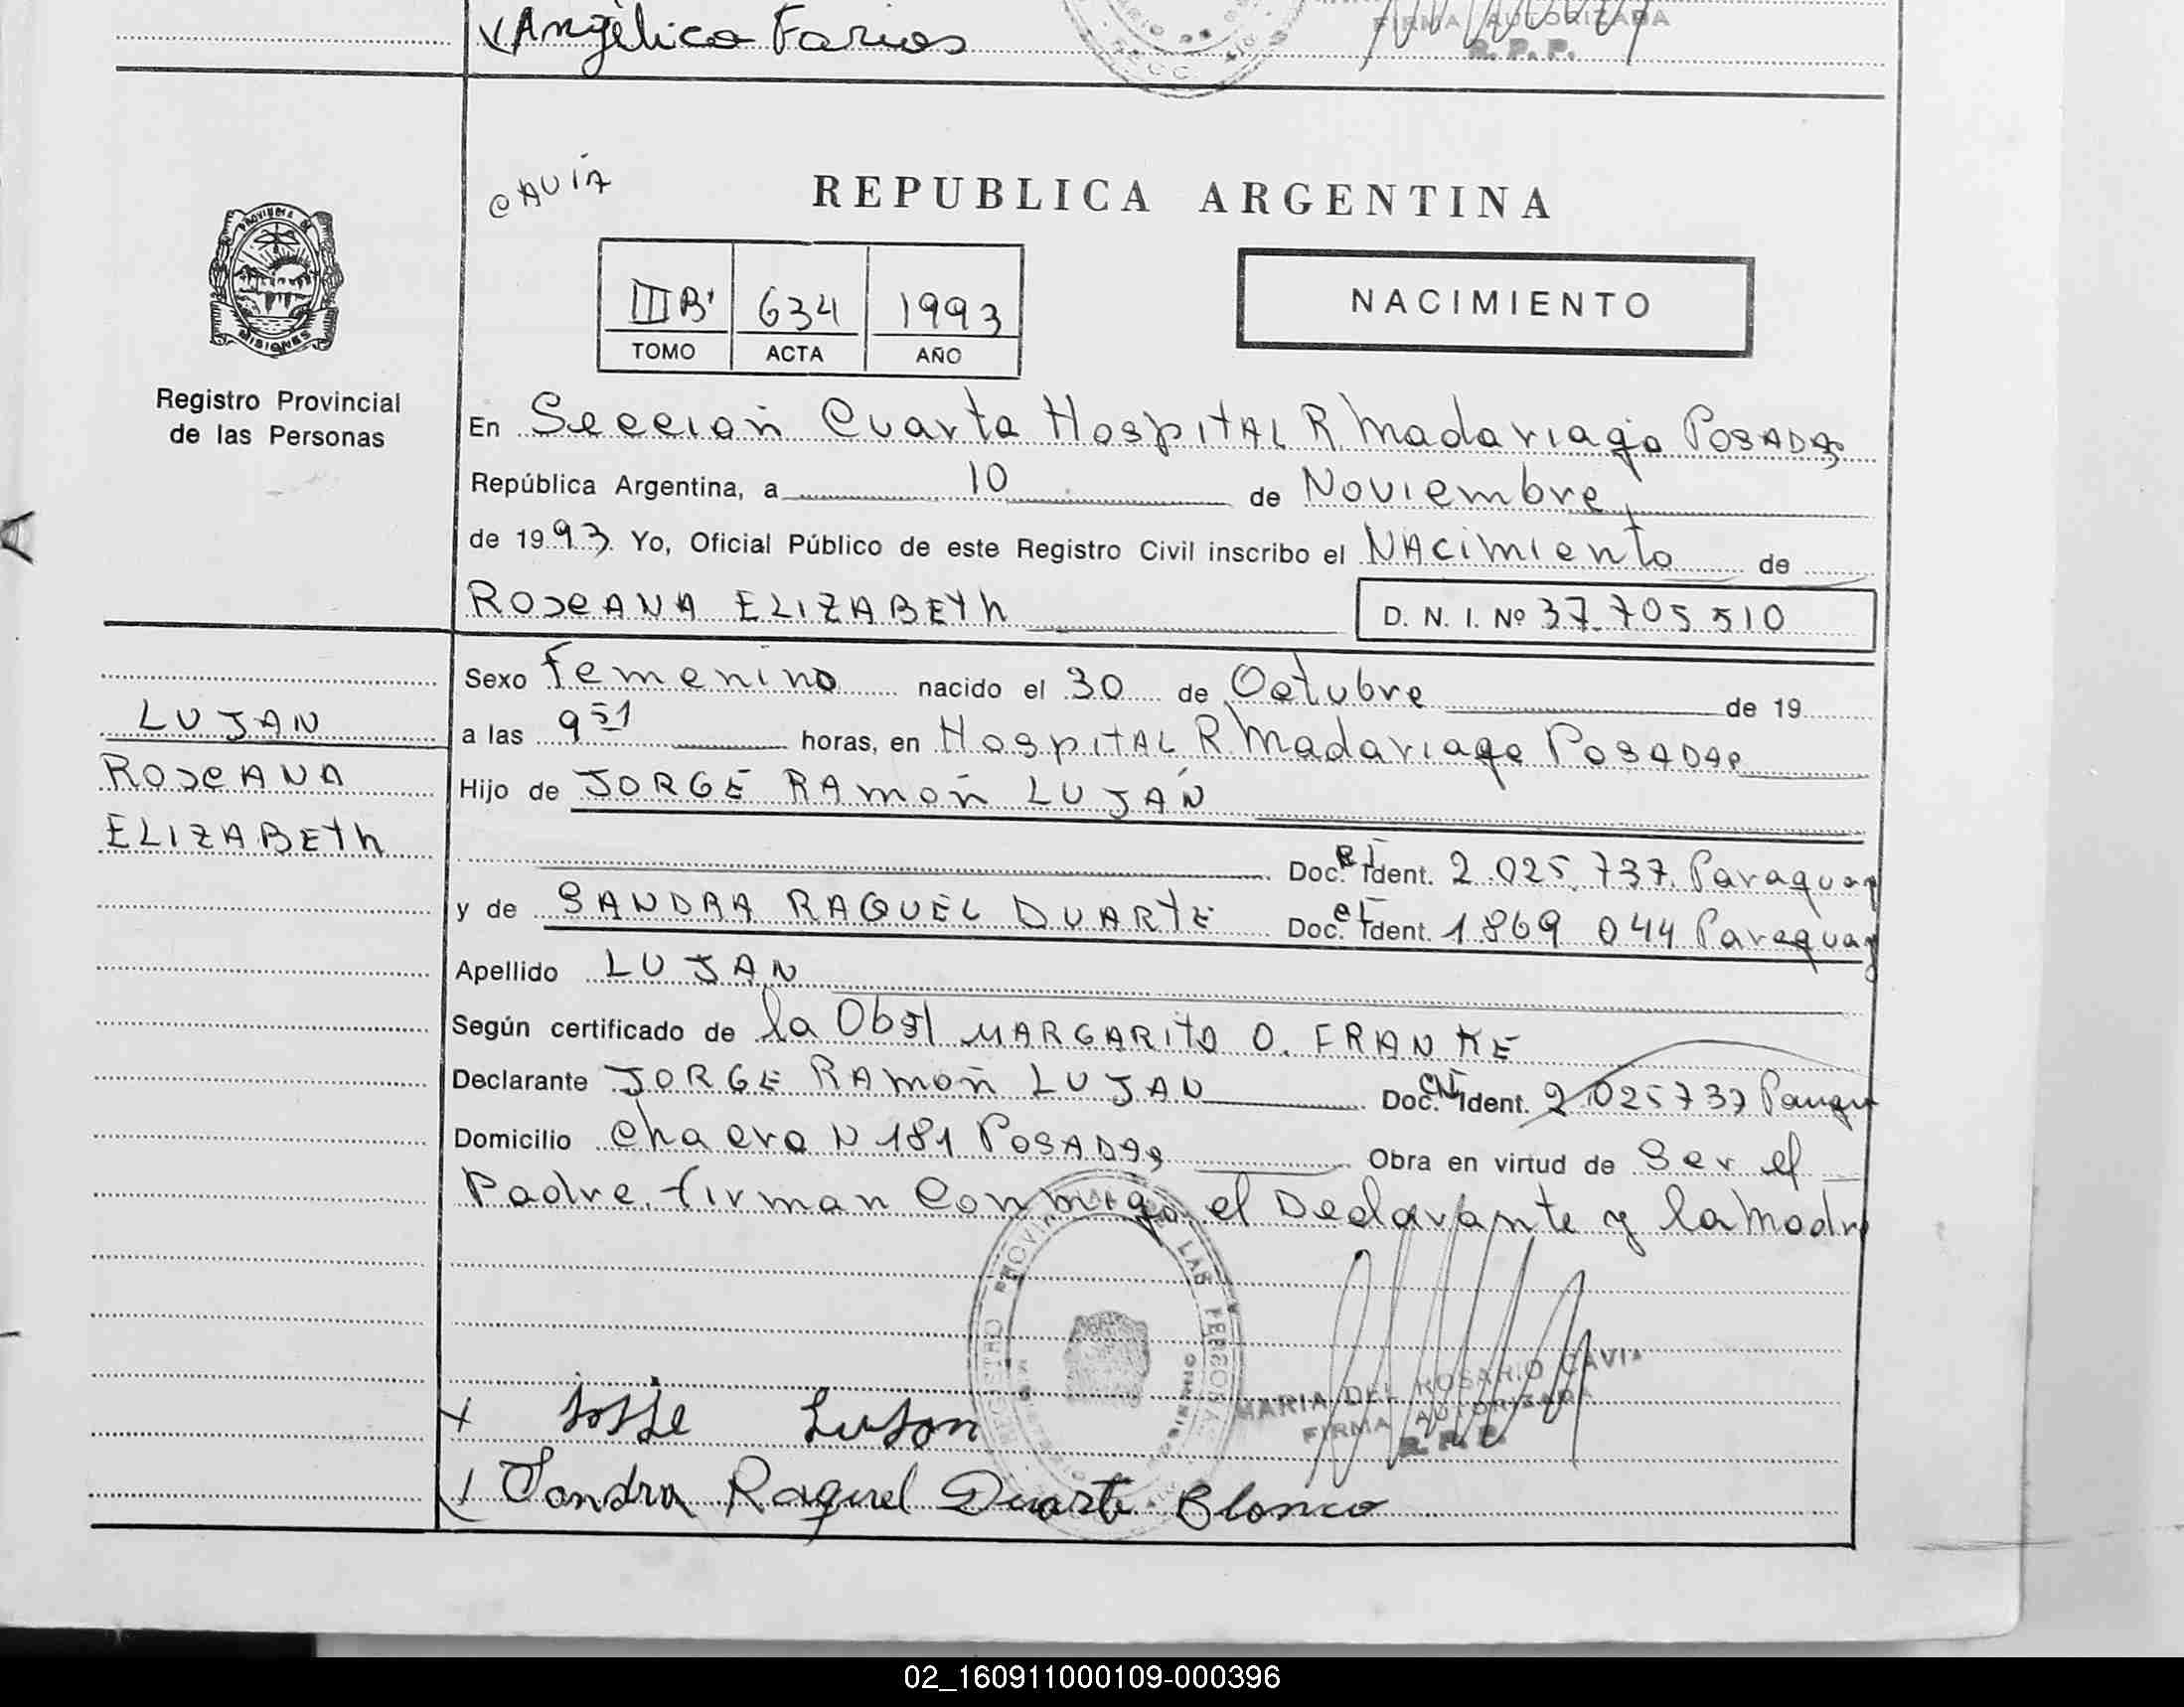 Angélica Farias
FIRMA AUTORIZADA
R. P. P.
CAVIA
REPUBLICA ARGENTINA
PROVINCIA DE MISIONES
III B' 634 1993
TOMO ACTA AÑO
NACIMIENTO
Registro Provincial
de las Personas
En Sección Cuarta Hospital R Madariaga POSADAS
República Argentina, a 10 de Noviembre
de 1993 Yo, Oficial Público de este Registro Civil inscribo el NAcimiento de
ROXANA ELIZABETH
D. N. I. Nº 37.705 510
LUJAN
ROXANA
ELIZABETH
Sexo Femenino nacido el 30 de Octubre de 19
a las 9 51 horas, en HospITAL R Madariaga POSADAS
Hijo de JORGE RAMóN LUJÁN
Doc. Ident. 2.025.737. Paraguay
y de SANDRA RAQUEL DUARTE Doc. Ident. 1.869 044 Paraguay
Apellido LUJAN
Según certificado de la Obst MARGARITA O. FRANKE
Declarante JORGE RAMóN LUJAN Doc. CI Ident. 2.025737
Domicilio Chacra N 181 POSADAS Obra en virtud de Ser el
Padre. firman Conmigo el Declarante y la Madre
REGISTRO PROVINCIAL DE LAS PERSONAS
MARIA DEL ROSARIO CAVIA
FIRMA AUTORIZADA
R. P. P.
Jorge Lujan
Sandra Raquel Duarte Blanco
02_160911000109-000396